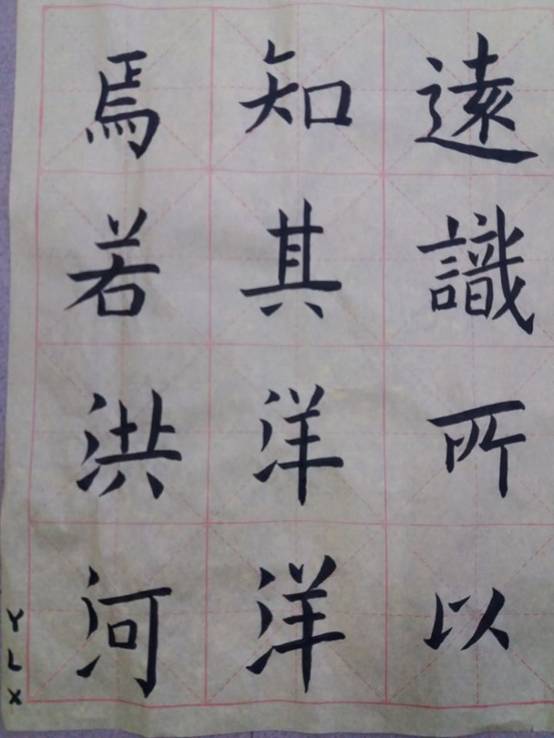 遠識所以
知其洋洋
焉若洪河
YLX